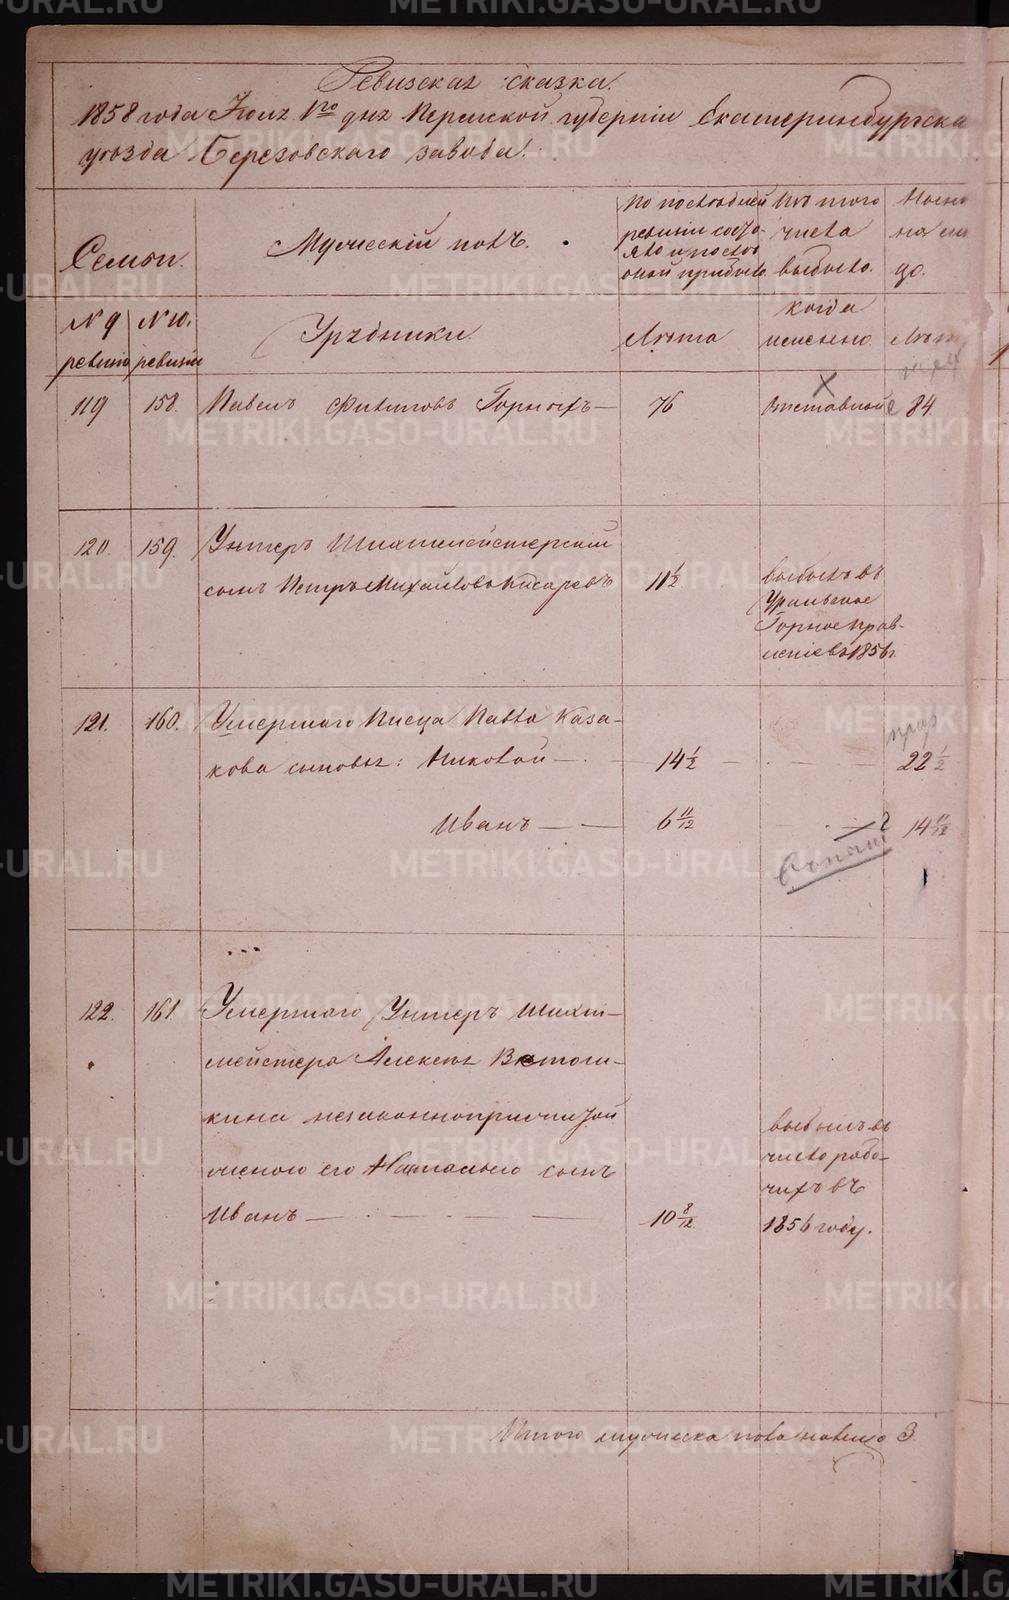 Ревизская сказка.
1858 года Юня 1го дня Пермской губернiи Екатеринбургска
уѣзда Березовскаго завода.
Семьи.
Мужескiй полъ.
По последней
ревизiи состо-
яло и после
оной прибыло
Изъ того
числа
выбыло.
Ныне
на ли
цо.
№ 9
ревизiи
№ 10.
ревизiи
Урядники
Лѣта
когда
именно
Лѣта
119 158. Павелъ Филиповъ Горныхъ— 76 Отставной 84
120. 159. Унтеръ Шихтмейстерскiй
сынъ Петръ Михайловъ Писаревъ 11 1/2
выбылъ въ
Уральское
Горное прав-
ленiе въ 1856 г.
121. 160. Умершаго Писца Павла Каза-
кова сыновья: Николай — 14 1/2 — 22 1/2
Иванъ — — 6 11/12 — 14 11/12
122. 161. Умершаго Унтеръ Шихт-
мейстера Алексея
кина незаконноприжитой
женою его Натальею сынъ
Иванъ — 10 8/12
выбылъ въ
число рабо-
чихъ въ
1856 году.
Итого мужеска пола налицо 3.
METRIKI.GASO-URAL.RU